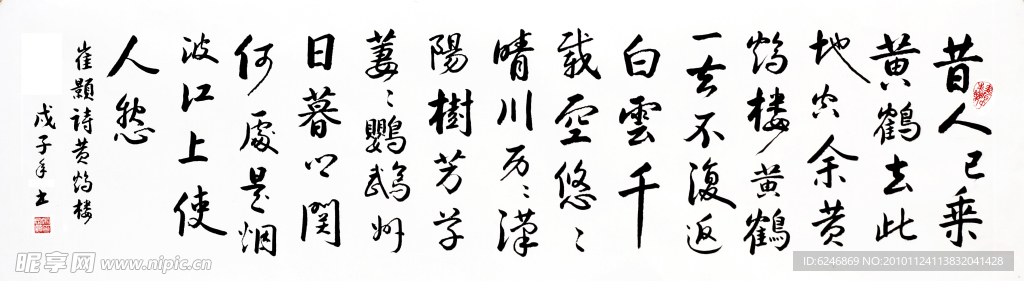 昔人已乗
黄鶴去此
地空余黄
鹤楼黄鶴
一去不復返
白雲千
載空悠〻
晴川历〻漢
陽樹芳草
萋〻鸚鵡州
日暮乡関
何處是烟
波江上使
人愁
崔顥诗黄鹤楼
戊子年书
昵享网 www.nipic.cn
ID:6246869 NO:20101124113832041428